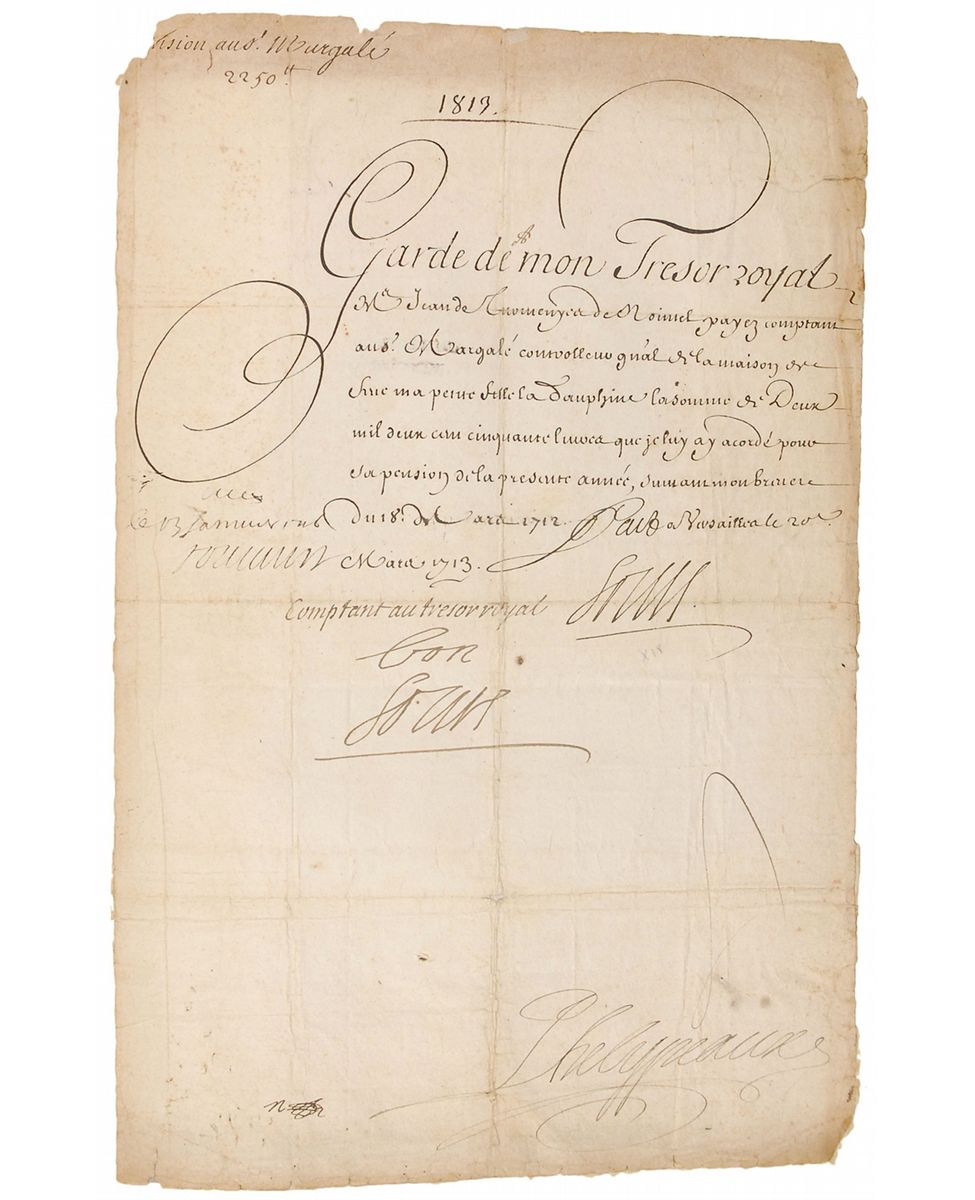 au Sr. Margalé
2250 tt
1813.
Garde de mon Tresor royal
Me Jean de de payez comptant
au Sr. Margalé controlleur gnãl de la maison de
feue ma petite fille la Dauphine la somme de Deux
mil deux cens cinquante livres que je luy ay acordé pour
sa pension de la presente année, suivant mon brevet
du 18e. de Mars 1712. Fait a Versailles le 20e.
Mars 1713.
Louis
Comptant au tresor royal
bon
Louis
XIV
Phelypeaux